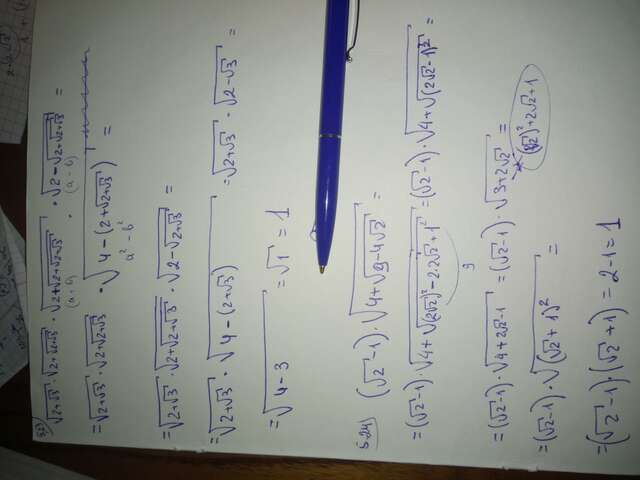 √(2+√3) · √(2+√(2+√3)) · √(2+√(2+√(2+√3))) · √(2-√(2+√(2+√3))) =
(a+b) · (a-b)
= √(2+√3) · √(2+√(2+√3)) · √(4-(2+√(2+√3))) =
a²-b²
= √(2+√3) · √(2+√(2+√3)) · √(2-√(2+√3)) =
= √(2+√3) · √(4-(2+√3)) = √(2+√3) · √(2-√3) =
= √(4-3) = √1 = 1
5.24) (√2-1) · √(4+√(9-4√2)) =
= (√2-1) · √(4+√((2√2)²-2·2√2+1²)) = (√2-1) · √(4+√((2√2-1)²)) =
9
= (√2-1) · √(4+2√2-1) = (√2-1) · √(3+2√2) =
(√2)²+2√2+1
= (√2-1) · √((√2+1)²) =
= (√2-1) · (√2+1) = 2-1 = 1